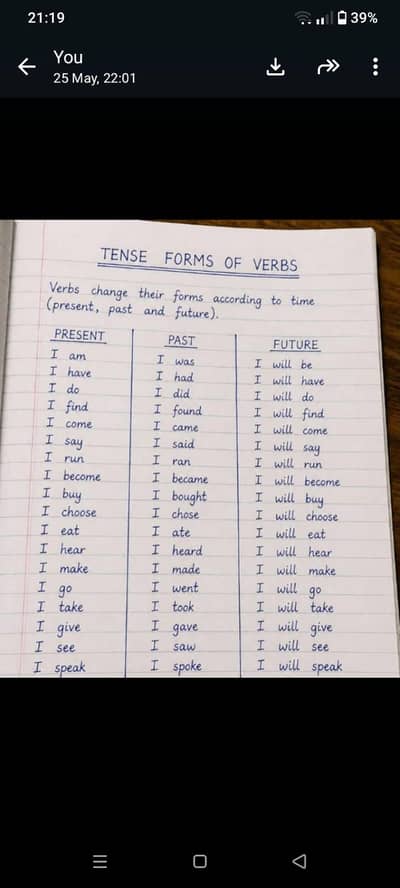 21:19
39%
You
25 May, 22:01
TENSE FORMS OF VERBS
Verbs change their forms according to time
(present, past and future).
PRESENT PAST FUTURE
I am I was I will be
I have I had I will have
I do I did I will do
I find I found I will find
I come I came I will come
I say I said I will say
I run I ran I will run
I become I became I will become
I buy I bought I will buy
I choose I chose I will choose
I eat I ate I will eat
I hear I heard I will hear
I make I made I will make
I go I went I will go
I take I took I will take
I give I gave I will give
I see I saw I will see
I speak I spoke I will speak